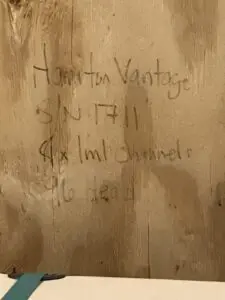 Hamilton Vantage
S/N 1711
8x 1ml channels
96 head